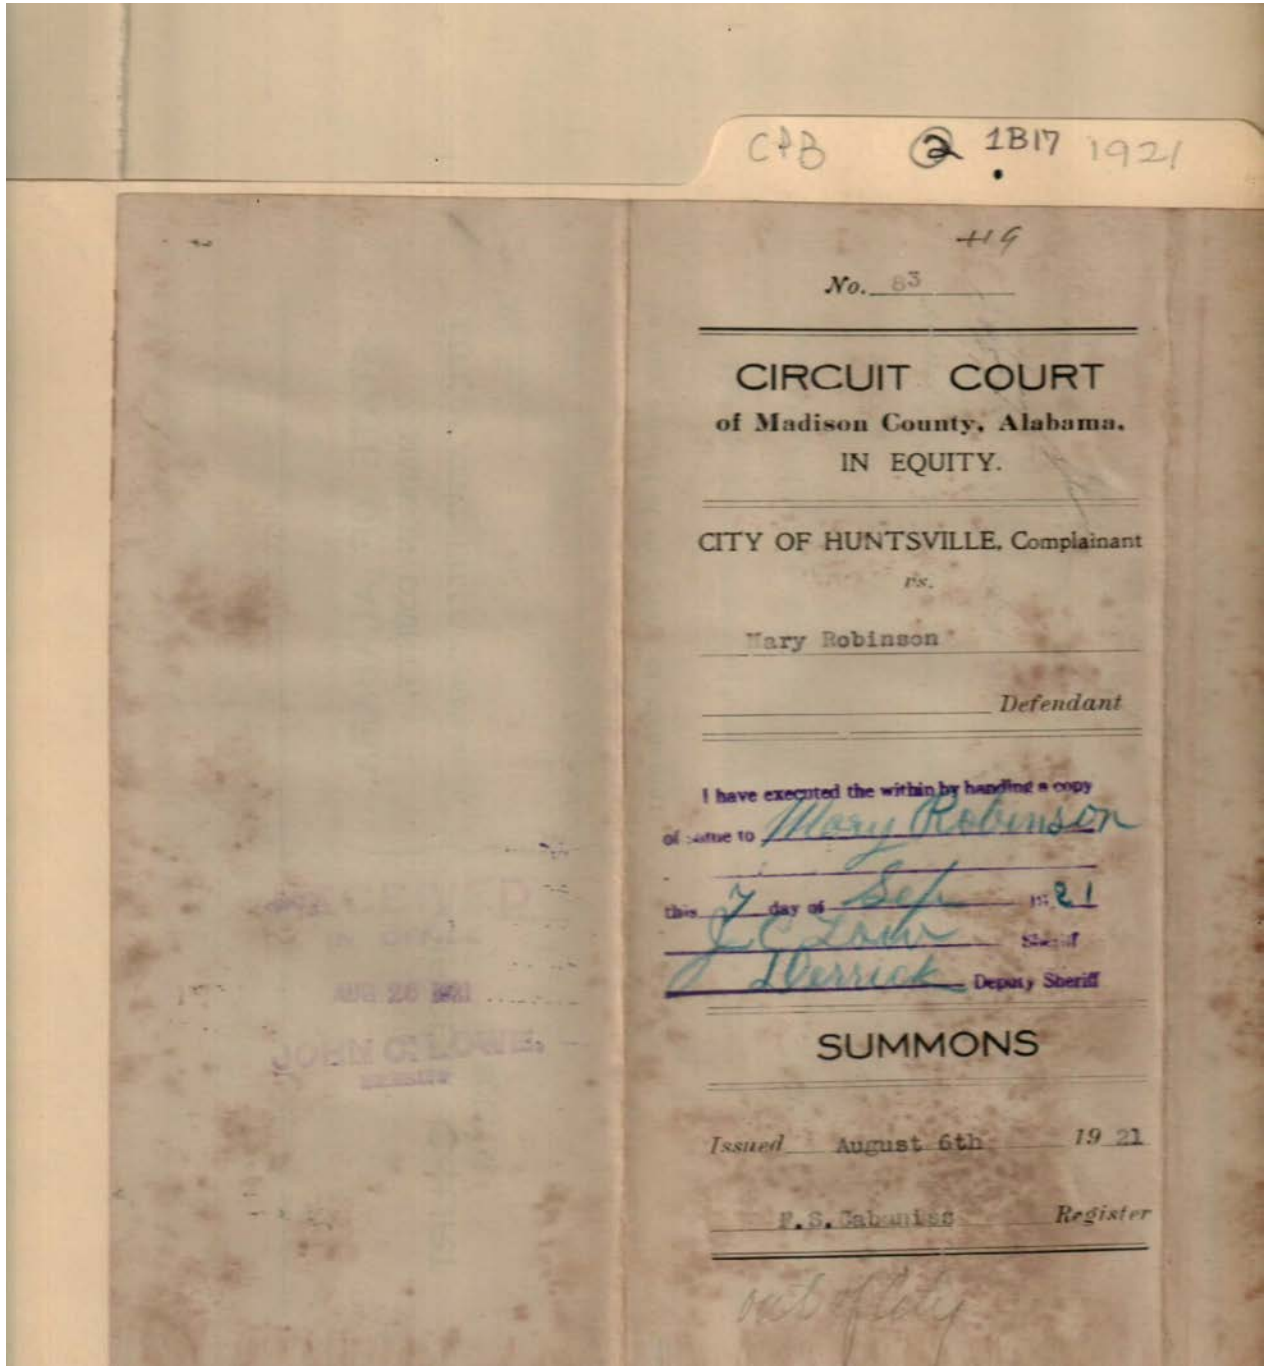 CPB 2 1B17 1921
H9
No. 83
CIRCUIT COURT
of Madison County, Alabama.
IN EQUITY.
CITY OF HUNTSVILLE, Complainant
vs.
Mary Robinson
Defendant
I have executed the within by handing a copy
of same to Mary Robinson
this 7 day of Sep 1921
J C Lowe Sheriff
Derrick Deputy Sheriff
SUMMONS
Issued August 6th 19 21
F.S.Cabaniss Register
out of City
RECEIVED
IN OFFICE
AUG 26 1921
JOHN C. LOWE,
SHERIFF